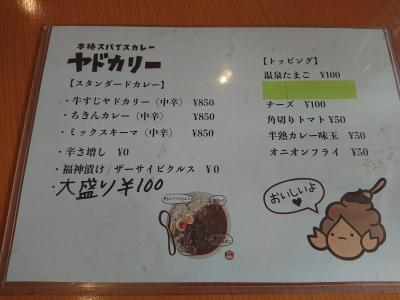 本格スパイスカレー
ヤドカリー
【スタンダードカレー】
・牛すじヤドカリー（中辛） ¥850
・ちきんカレー（中辛） ¥850
・ミックスキーマ（中辛） ¥850
・辛さ増し ¥0
・福神漬け/ザーサイピクルス ¥0
・大盛り¥100
【トッピング】
温泉たまご ¥100
チーズ ¥100
角切りトマト ¥50
半熟カレー味玉 ¥50
オニオンフライ ¥50
おいしいよ